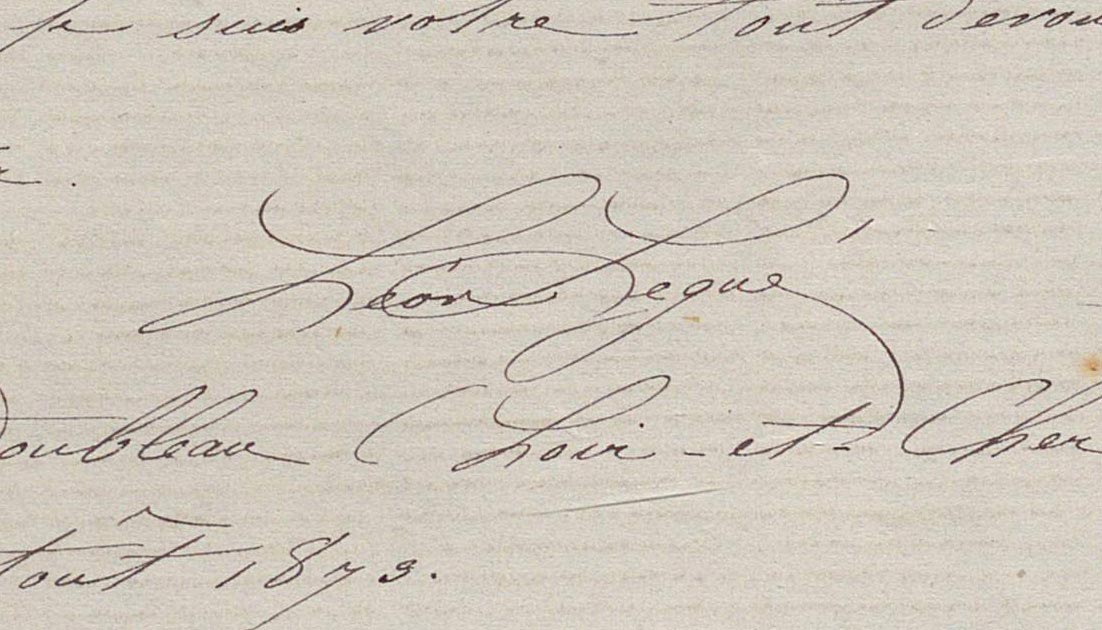 je suis votre tout dévou
Léon Legué
oubleau (Loir-et-Cher
août 1873.